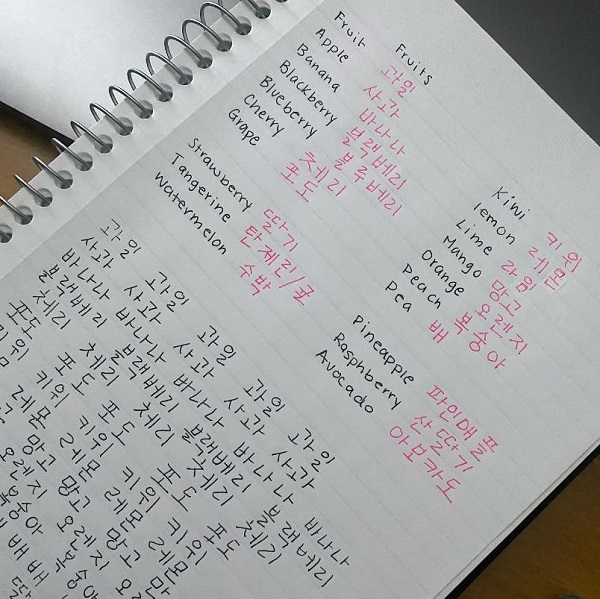 Fruits
Fruit 과일
Apple 사과
Banana 바나나
Blackberry 블랙베리
Blueberry 블루베리
Cherry 체리
Grape 포도
Kiwi 키위
lemon 레몬
Lime 라임
Mango 망고
Orange 오렌지
Peach 복숭아
Pea 배
Strawberry 딸기
Tangerine 탄제린/귤
Watermelon 수박
Pineapple 파인애플
Raspberry 산딸기
Avocado 아보카도
과일 과일 과일 과일 과일
사과 사과 사과 사과 사과
바나나 바나나 바나나 바나나 바나나
블랙베리 블랙베리 블랙베리 블랙베리
체리 체리 체리 체리
포도 포도 포도 포도 포도
키위 키위 키위 키위
레몬 레몬 레몬 레몬
망고 망고 망고
오렌지 오렌지
복숭아 복숭아
배 배 배